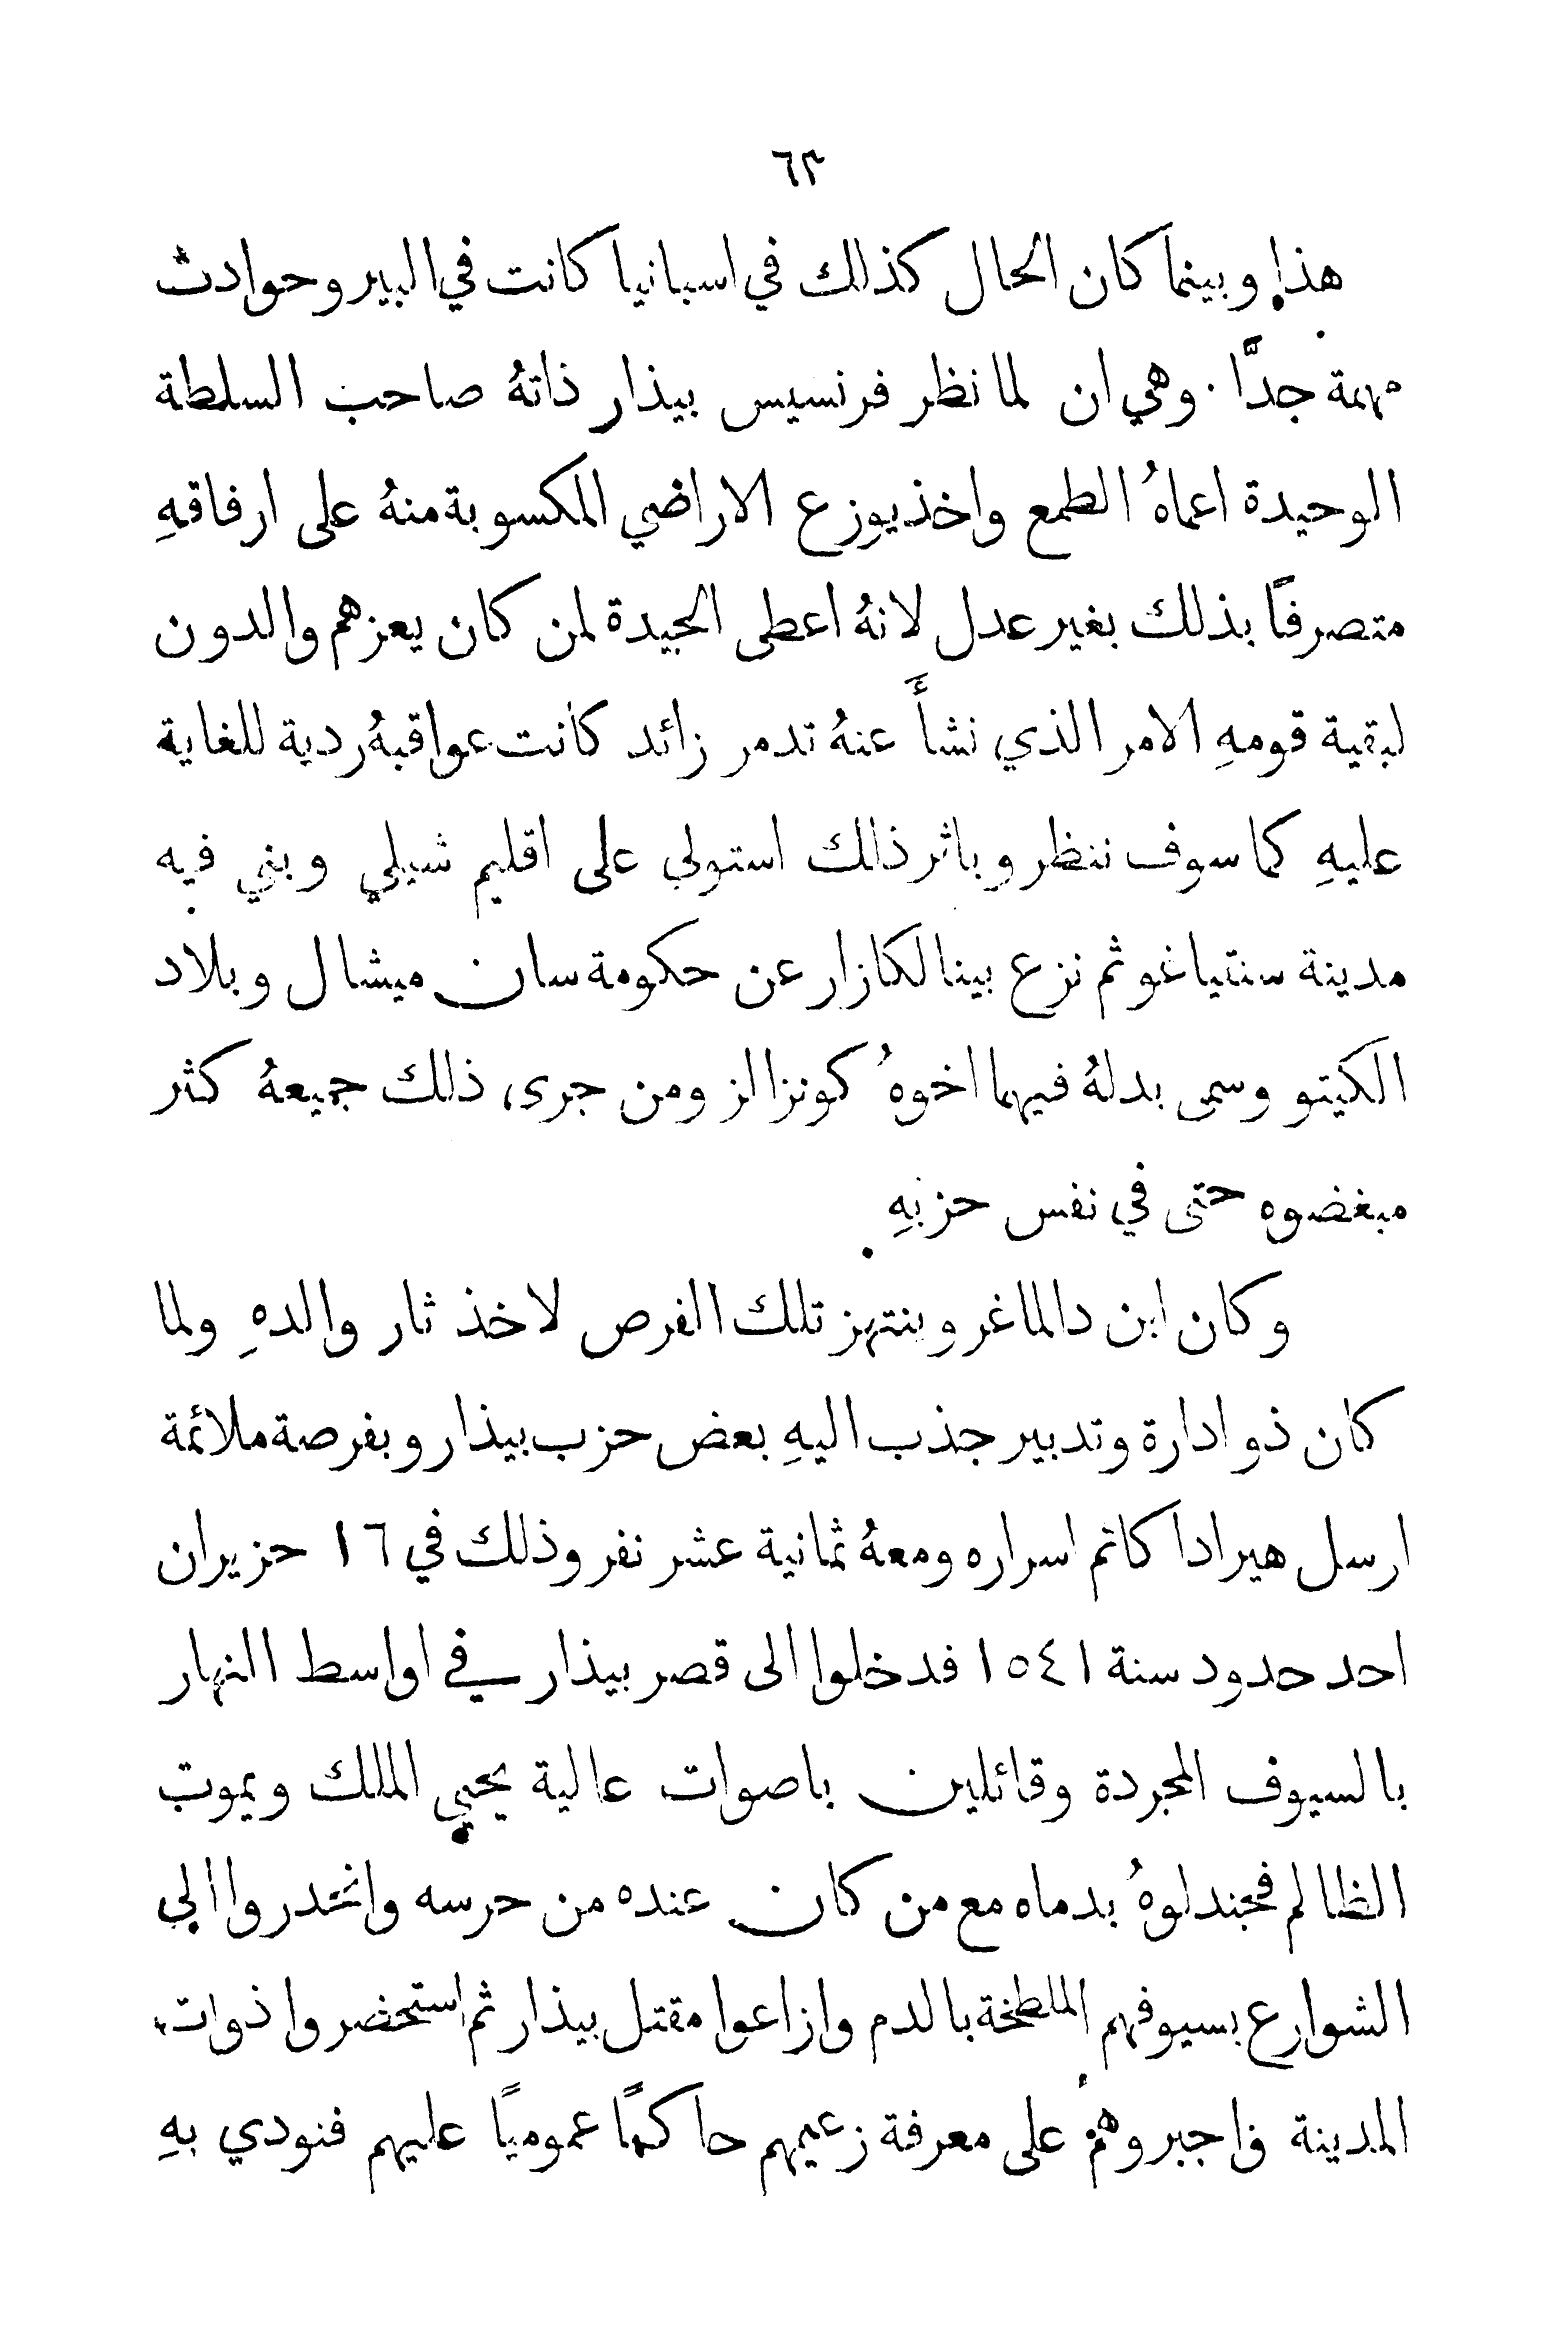 ٦٣
هذا وبينما كان الحال كذلك في اسبانيا كانت في البيرو حوادث
مهمة جدًّا . وهي ان لما نظر فرنسيس بيذار ذاتهُ صاحب السلطة
الوحيدة اعماهُ الطمع واخذ يوزع الاراضي المكسوبة منهُ على ارفاقهِ
متصرفًا بذلك بغير عدل لانهُ اعطى الجيدة لمن كان يعزهم والدون
لبقية قومهِ الامر الذي نشأَ عنهُ تدمر زائد كانت عواقبهُ ردية للغاية
عليهِ كما سوف ننظر وباثر ذلك استولى على اقليم شيلي وبني فيه
مدينة سنتياغو ثم نزع بينالكازار عن حكومة سان ميشال وبلاد
الكيتو وسمى بدلهُ فيهما اخوهُ كونزالز ومن جرى ذلك جميعهُ كثر
مبغضوه حتى في نفس حزبهِ
وكان ابن دالماغرو ينتهز تلك الفرص لاخذ ثار والدهِ ولما
كان ذو ادارة وتدبير جذب اليهِ بعض حزب بيذار وبفرصة ملائمة
ارسل هيرادا كاتم اسراره ومعهُ ثمانية عشر نفر وذلك في ١٦ حزيران
احد حدود سنة ١٥٤١ فدخلوا الى قصر بيذار في اواسط النهار
بالسيوف المجردة وقائلين باصوات عالية يحيي الملك ويموت
الظالم فجندلوهُ بدماه مع من كان عنده من حرسه وانحدروا الي
الشوارع بسيوفهم الملطخة بالدم وازاعوا مقتل بيذار ثم استحضروا ذوات
المدينة واجبروهم على معرفة زعيمهم حاكمًا عموميًا عليهم فنودي بهِ